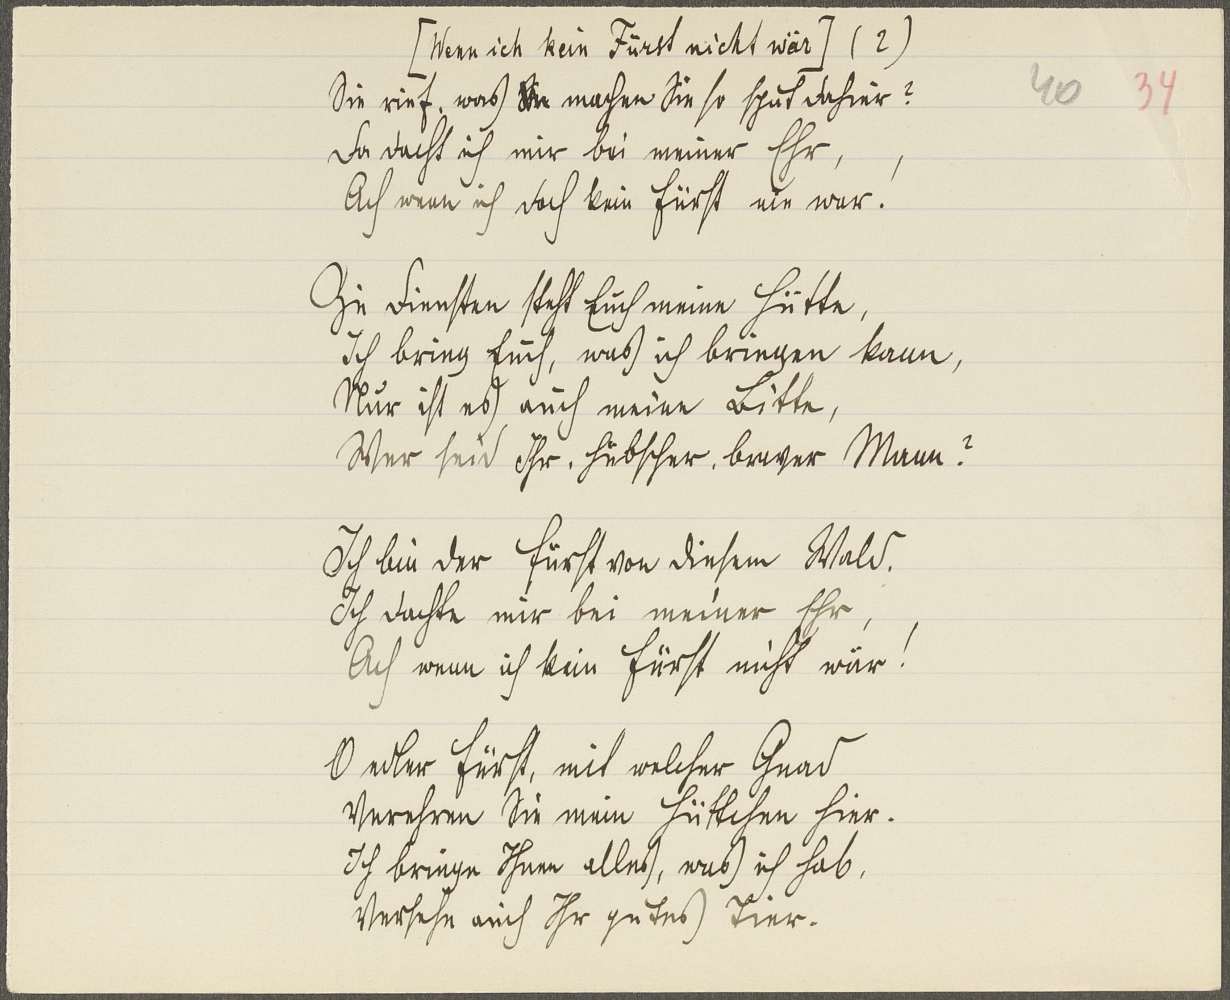 [Wenn ich kein Fürst nicht wär] (2)
40 34
Sie rief, was machen Sie so spät dahier?
Da dacht ich mir bei meiner Ehr,
Ach wenn ich doch kein Fürst nie war!
Zu Diensten steht Euch meine Hütte,
Ich bring Euch, was ich bringen kann,
Nur ist es auch meine Bitte,
Wer seid Ihr, hübscher, braver Mann?
Ich bin der Fürst von diesem Wald.
Ich dachte mir bei meiner Ehr,
Ach wenn ich kein Fürst nicht wär!
O edler Fürst, mit welcher Gnad
Verehren Sie mein Hüttchen hier.
Ich bringe Ihnen alles, was ich hab,
Versehe auch Ihr gutes Tier.